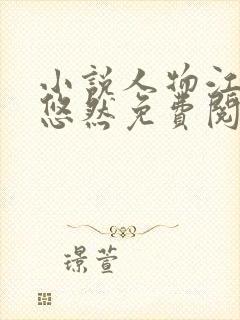 小説人物江
悠然免費閱
璟萱